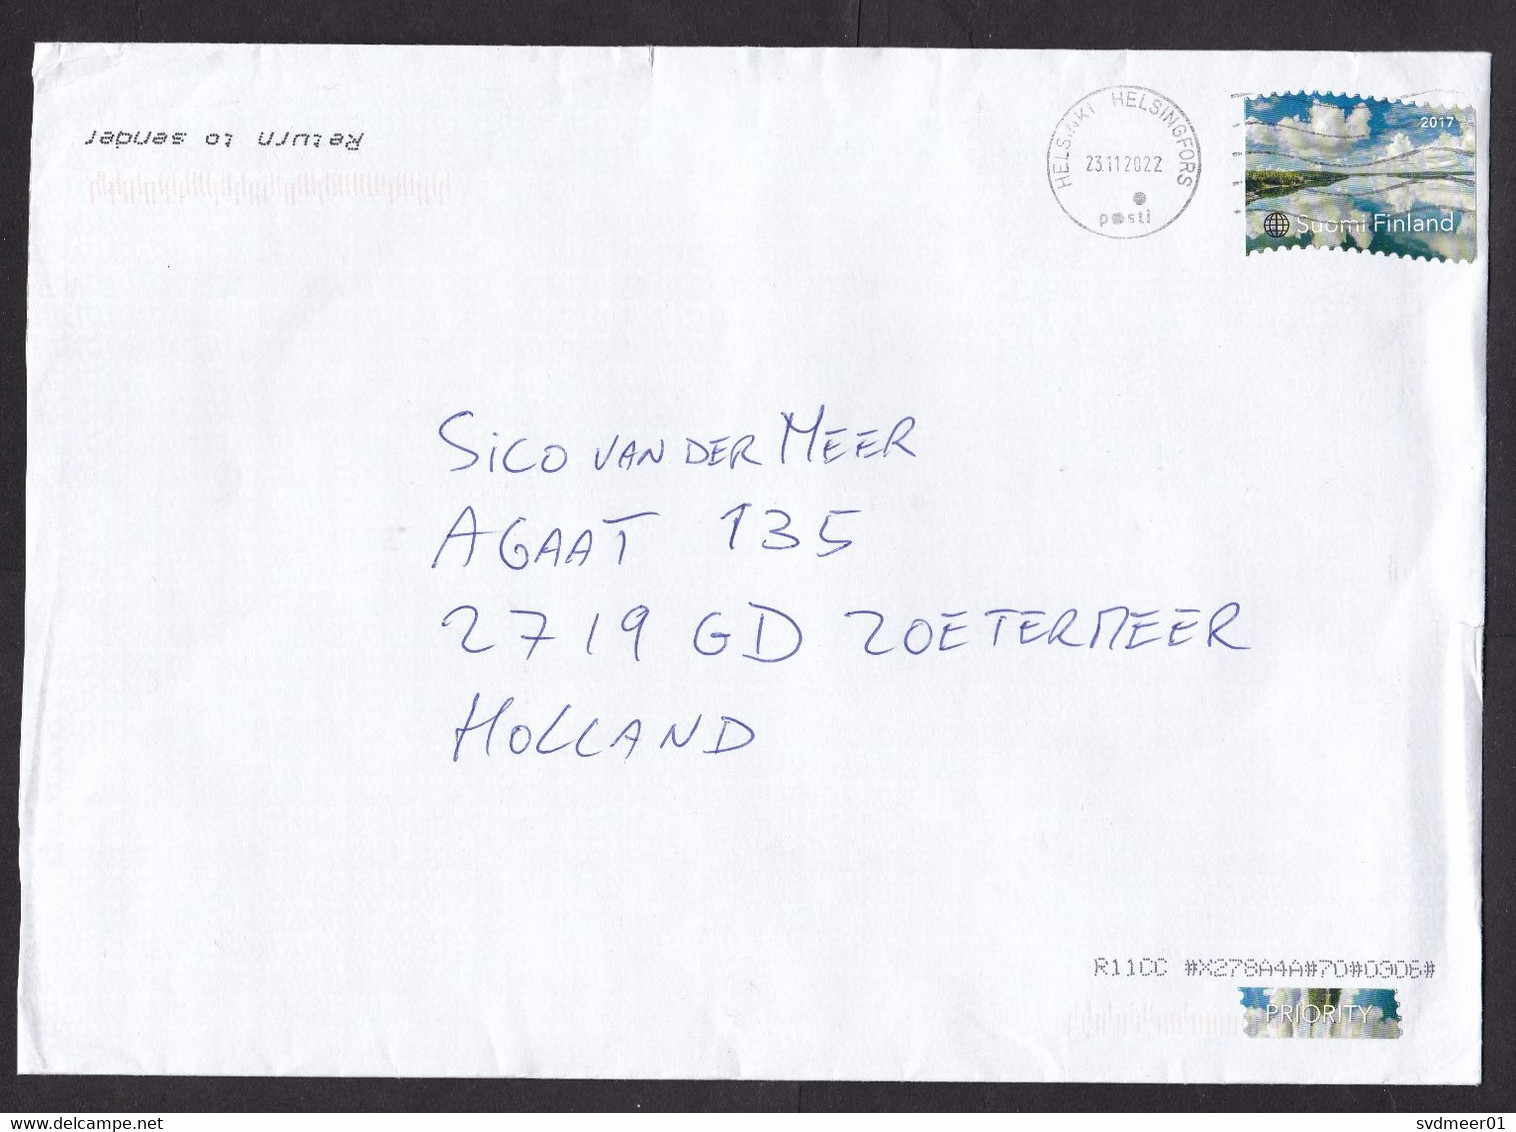 Return to sender
HELSINKI HELSINGFORS
23.11.2022
posti
2017
Suomi Finland
SICO VAN DER MEER
AGAAT 135
2719 GD ZOETERMEER
HOLLAND
R11CC #X278A4A#70#0306#
PRIORITY
delcampe.net
svdmeer01